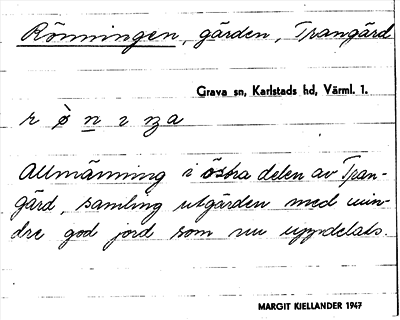 Rönningen, gärden, Trangärd
Grava sn, Karlstads hd, Värml. 1.
r ø̀ n ɪ ŋa
Allmänning i östra delen av Tran-
gärd, samling utgärden med min-
dre god jord som nu uppdelats.
MARGIT KJELLANDER 1947